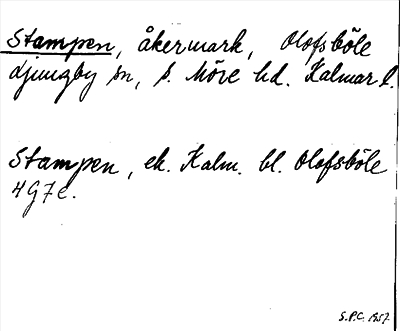 Stampen, åkermark, Olofsböle
Ljungby sn, S. Möre hd. Kalmar l.
Stampen, ek. Kalm. bl. Olofsböle
4 G 7 e.
S.P.C. 1957